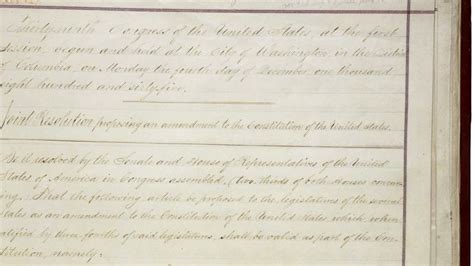 Thirty-ninth Congress of the United States, at the first
Session, begun and held at the City of Washington, in the District
of Columbia, on Monday the fourth day of December, one thousand
eight hundred and sixty-five.
Joint Resolution proposing an amendment to the Constitution of the United States.
Be it resolved by the Senate and House of Representatives of the United
States of America in Congress assembled, (two thirds of both Houses concur-
ring,) That the following article be proposed to the legislatures of the several
States as an amendment to the Constitution of the United States, which, when
ratified by three fourths of said legislatures, shall be valid as part of the Con-
stitution, namely: